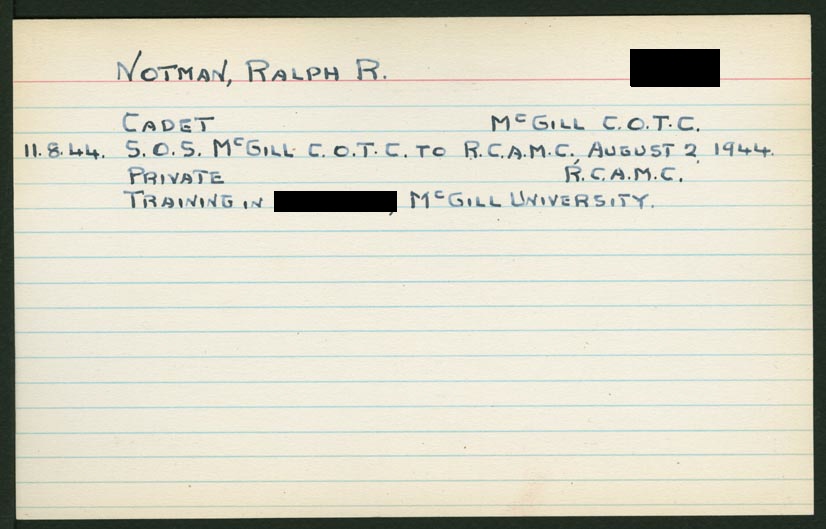 NOTMAN, RALPH R.
CADET McGILL C.O.T.C.
11.8.44. S.O.S. McGILL C.O.T.C. TO R.C.A.M.C., AUGUST 2, 1944.
PRIVATE R.C.A.M.C.
TRAINING IN , McGILL UNIVERSITY.